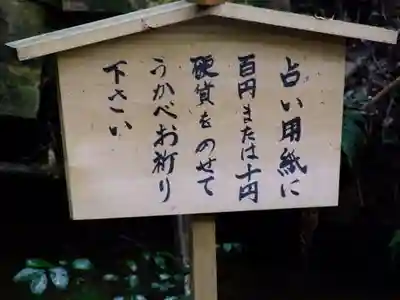 占い用紙に
百円または十円
硬貨をのせて
うかべお祈り
下さい